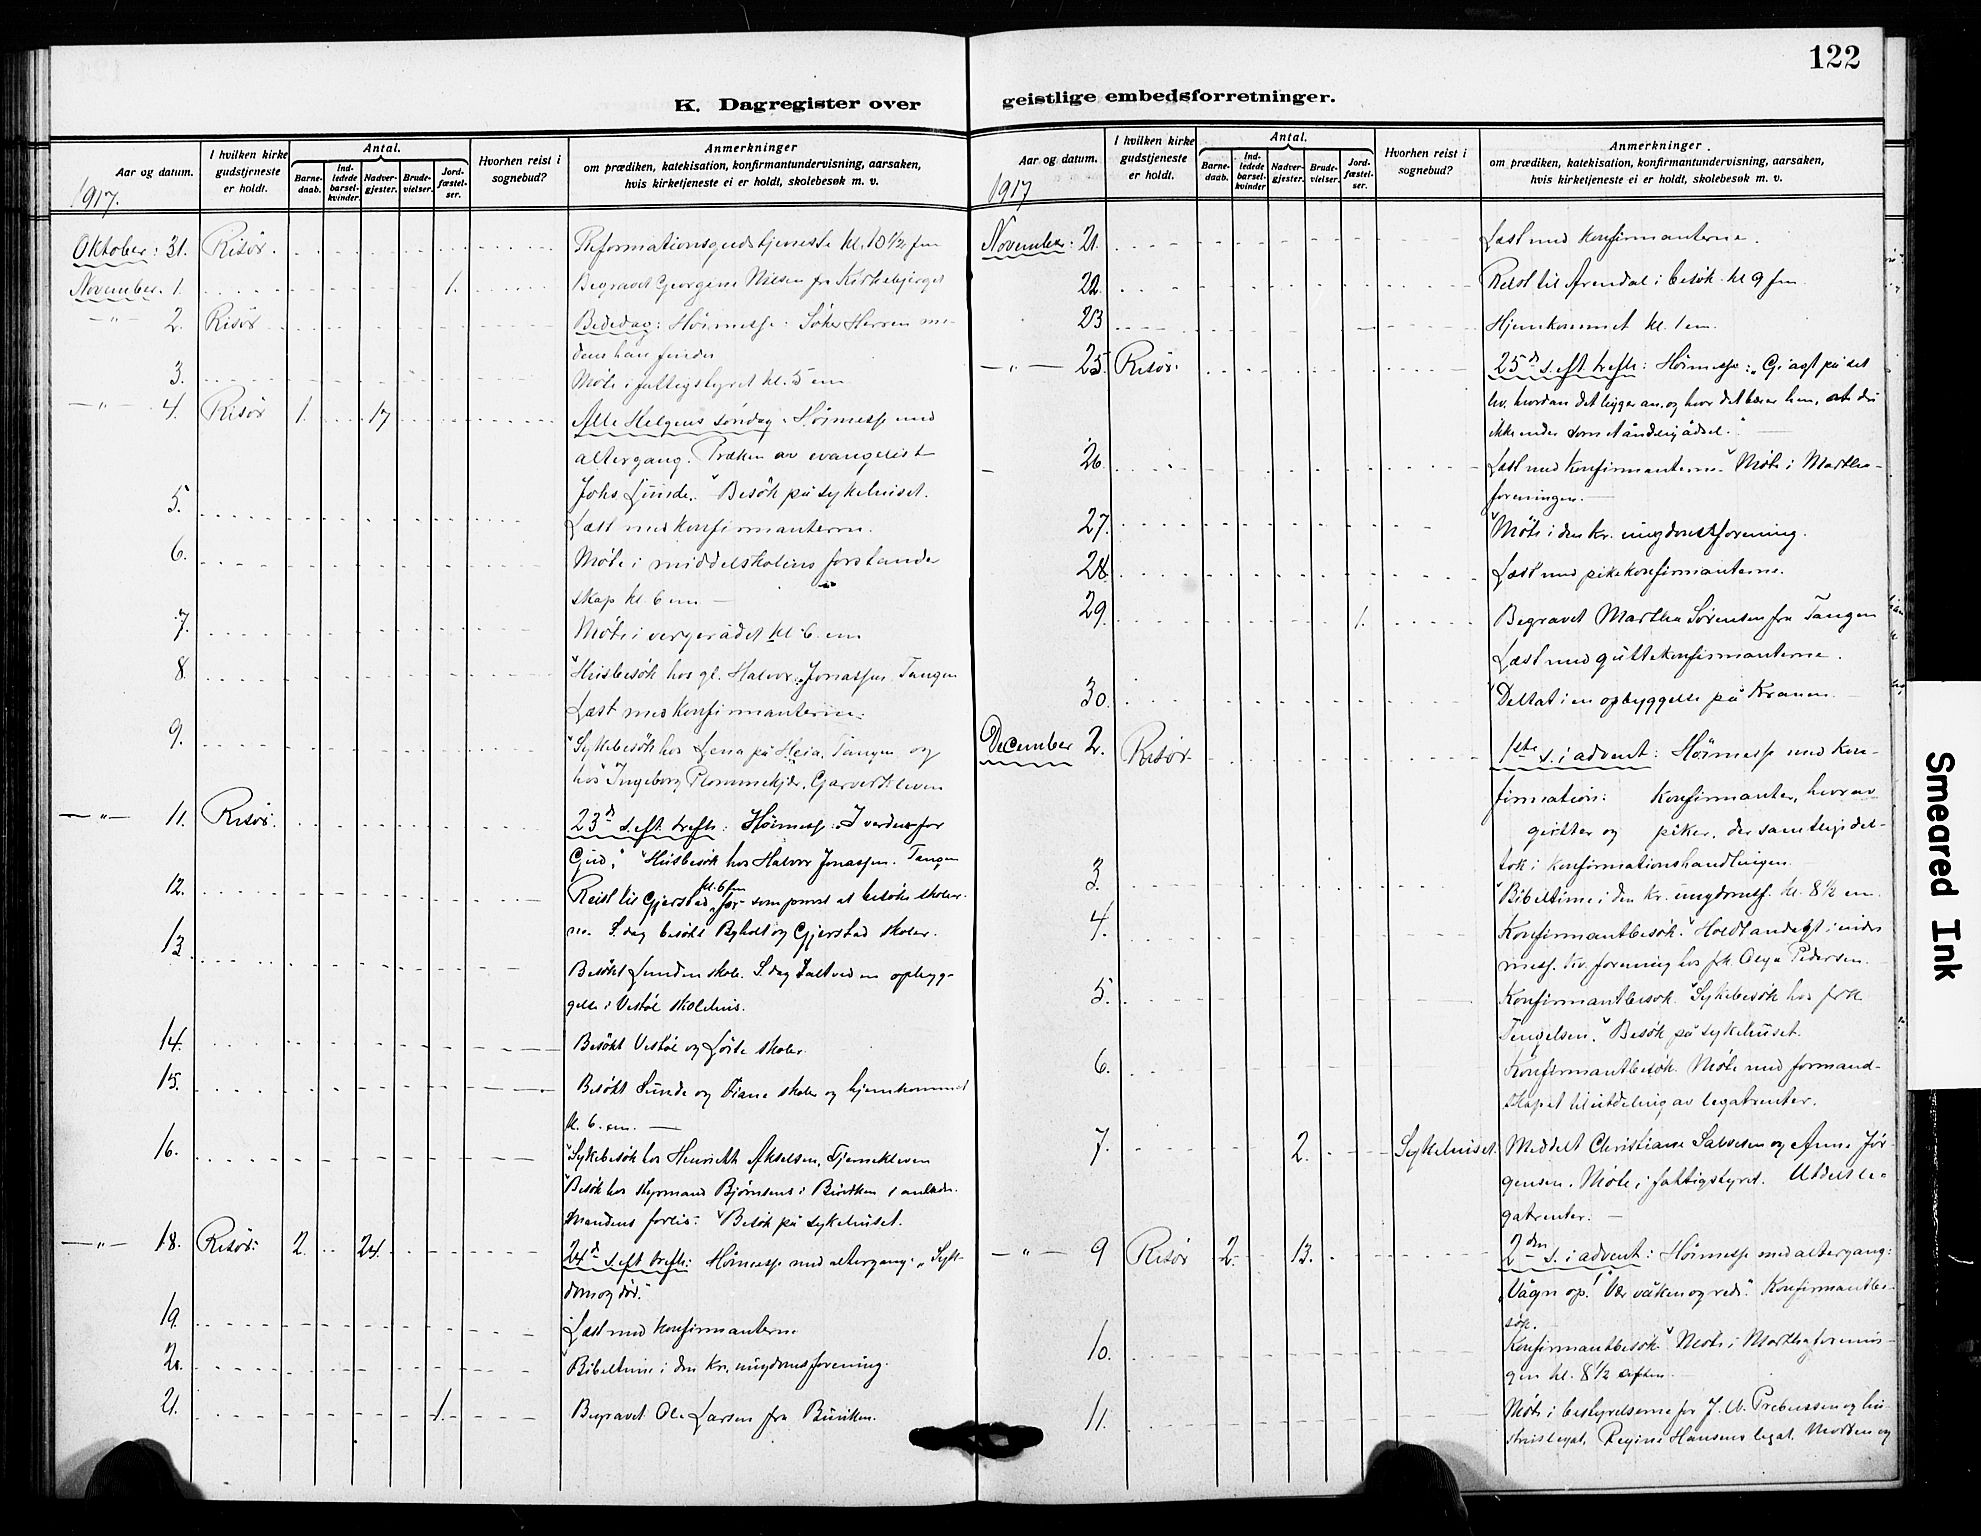 122
K. Dagregister over geistlige embedsforretninger.
Aar og datum.
I hvilken kirke gudstjeneste er holdt.
Antal.
Barne-daab.
Ind-ledede barsel-kvinder.
Nadver-gjester.
Brude-vielser.
Jord-fæstel-ser.
Hvorhen reist i sognebud?
Anmerkninger
om prædiken, katekisation, konfirmantundervisning, aarsaken,
hvis kirketjeneste ei er holdt, skolebesøk m. v.
1917.
Oktober: 31. Risør. Reformationsgudstjeneste kl. 10 1/2 fm
November. 1. 1. Begravet Georgine Nilsen fra Kirkebjerget
-"- 2. Risør Bededag: Høimesse: Søker Herren me-
dens han findes
3. Møte i fattigstyret kl. 5 em
-"- 4. Risør 1. 17 Alle Helgens søndag: Høimesse med
altergang. Præken av evangelist
Johs Lunde. "Besøk på sykehuset.
5. Læst med konfirmanterne.
6. Møte i middelskolens forstander
skap kl. 6 em —
7. Møte i vergerådet kl. 6. em
8. "Husbesøk hos gl. Halvor Jonassen, Tangen
Læst med konfirmanterne.
9. "Sykebesøk hos Lena på Heia, Tangen og
hos Ingeborg Plommekjær, Garverkleven
-"- 11. Risør. 23d s. eft. trefh: Høimesse: I verden for
Gud." "Husbesøk hos Halvor Jonassen. Tangen
12. Reist til Gjerstad kl. 6 fm for som provst at besøke skoler-
ne. S. dag besøkt Byholt og Gjerstad skoler.
13 Besøkt Lunden skole. S. dag talt ved en opbyg-
gelse i Vestøl skolehus.
14. Besøkt Vestøl og Løite skoler
15. Besøkt Sunde og Fiane skoler og hjemkommet
kl. 6. em. —
16. "Sykebesøk hos Henrikke Akselsen, Tjernekleven
"Besøk hos styrmand Bjørnsens i Buviken i anledn.
Mandens forlis. "Besøk på sykehuset.
-"- 18. Risør: 2. 24. 24d s. eft trefh: Høimesse med altergang: "Syk-
dom og død."
19. Læst med konfirmanterne
20. "Bibeltime i den kr. ungdomsforening.
21. 1. Begravet Ole Larsen fra Buviken.
Aar og datum.
I hvilken kirke gudstjeneste er holdt.
Antal.
Barne-daab.
Ind-ledede barsel-kvinder.
Nadver-gjester.
Brude-vielser.
Jord-fæstel-ser.
Hvorhen reist i sognebud?
Anmerkninger.
om prædiken, katekisation, konfirmantundervisning, aarsaken,
hvis kirketjeneste ei er holdt, skolebesøk m. v.
1917
November: 21. Læst med konfirmanterne.
22. Reist til Arendal i besøk kl 9 fm
23 Hjemkommet kl. 1 em.
-"- 25. Risør. 25d s. eft trefh: Høimesse: "Gi agt på det
liv, hvordan det ligger an, og hvor det bærer hen, at du
ikke ender som et åndelig ådsel."
26. Læst med konfirmanterne. "Møte i Martha-
foreningen. —
27. "Møte i den kr. ungdomsforening.
28 Læst med pikekonfirmanterne.
29 1. Begravet Martha Sørensen fra Tangen
Læst med guttekonfirmanterne.
30. "Deltat i en opbyggelse på Kranen.
December 2. Risør. 1ste s. i advent: Høimesse med kon-
firmation: konfirmanter, hvorav
gutter og piker, der samtlige del-
tok i konfirmationshandlingen
3. "Bibeltime i den kr. ungdomsf. kl. 8 1/2 em.
4. Konfirmantbesøk. "Holdt andagt i indre
mess. kv. forening hos frk. Olga Pedersen.
5. Konfirmantbesøk. "Sykebesøk hos frk
Tengelsen. "Besøk på sykehuset.
6. Konfirmantbesøk. Møte med formand-
skapet til utdeling av legatrenter.
7. 2. Sykehuset. Meddelt Christiane Salvesen og Anne Jør-
gensen. Møte i fattigstyret. Utdelt le-
gatrenter. —
-"- 9 Risør 2. 13. 2den s. i advent: Høimesse med altergang:
"Vågn op! Vær våken og rede". Konfirmantbe-
søk.
10. Konfirmantbesøk. "Møte i Marthaforenin-
gen kl. 8 1/2 aften.
11. Møte i bestyrelserne for J. A. Prebensen og hu-
strus legat, Regine Hansens legat, Morten og
Smeared Ink